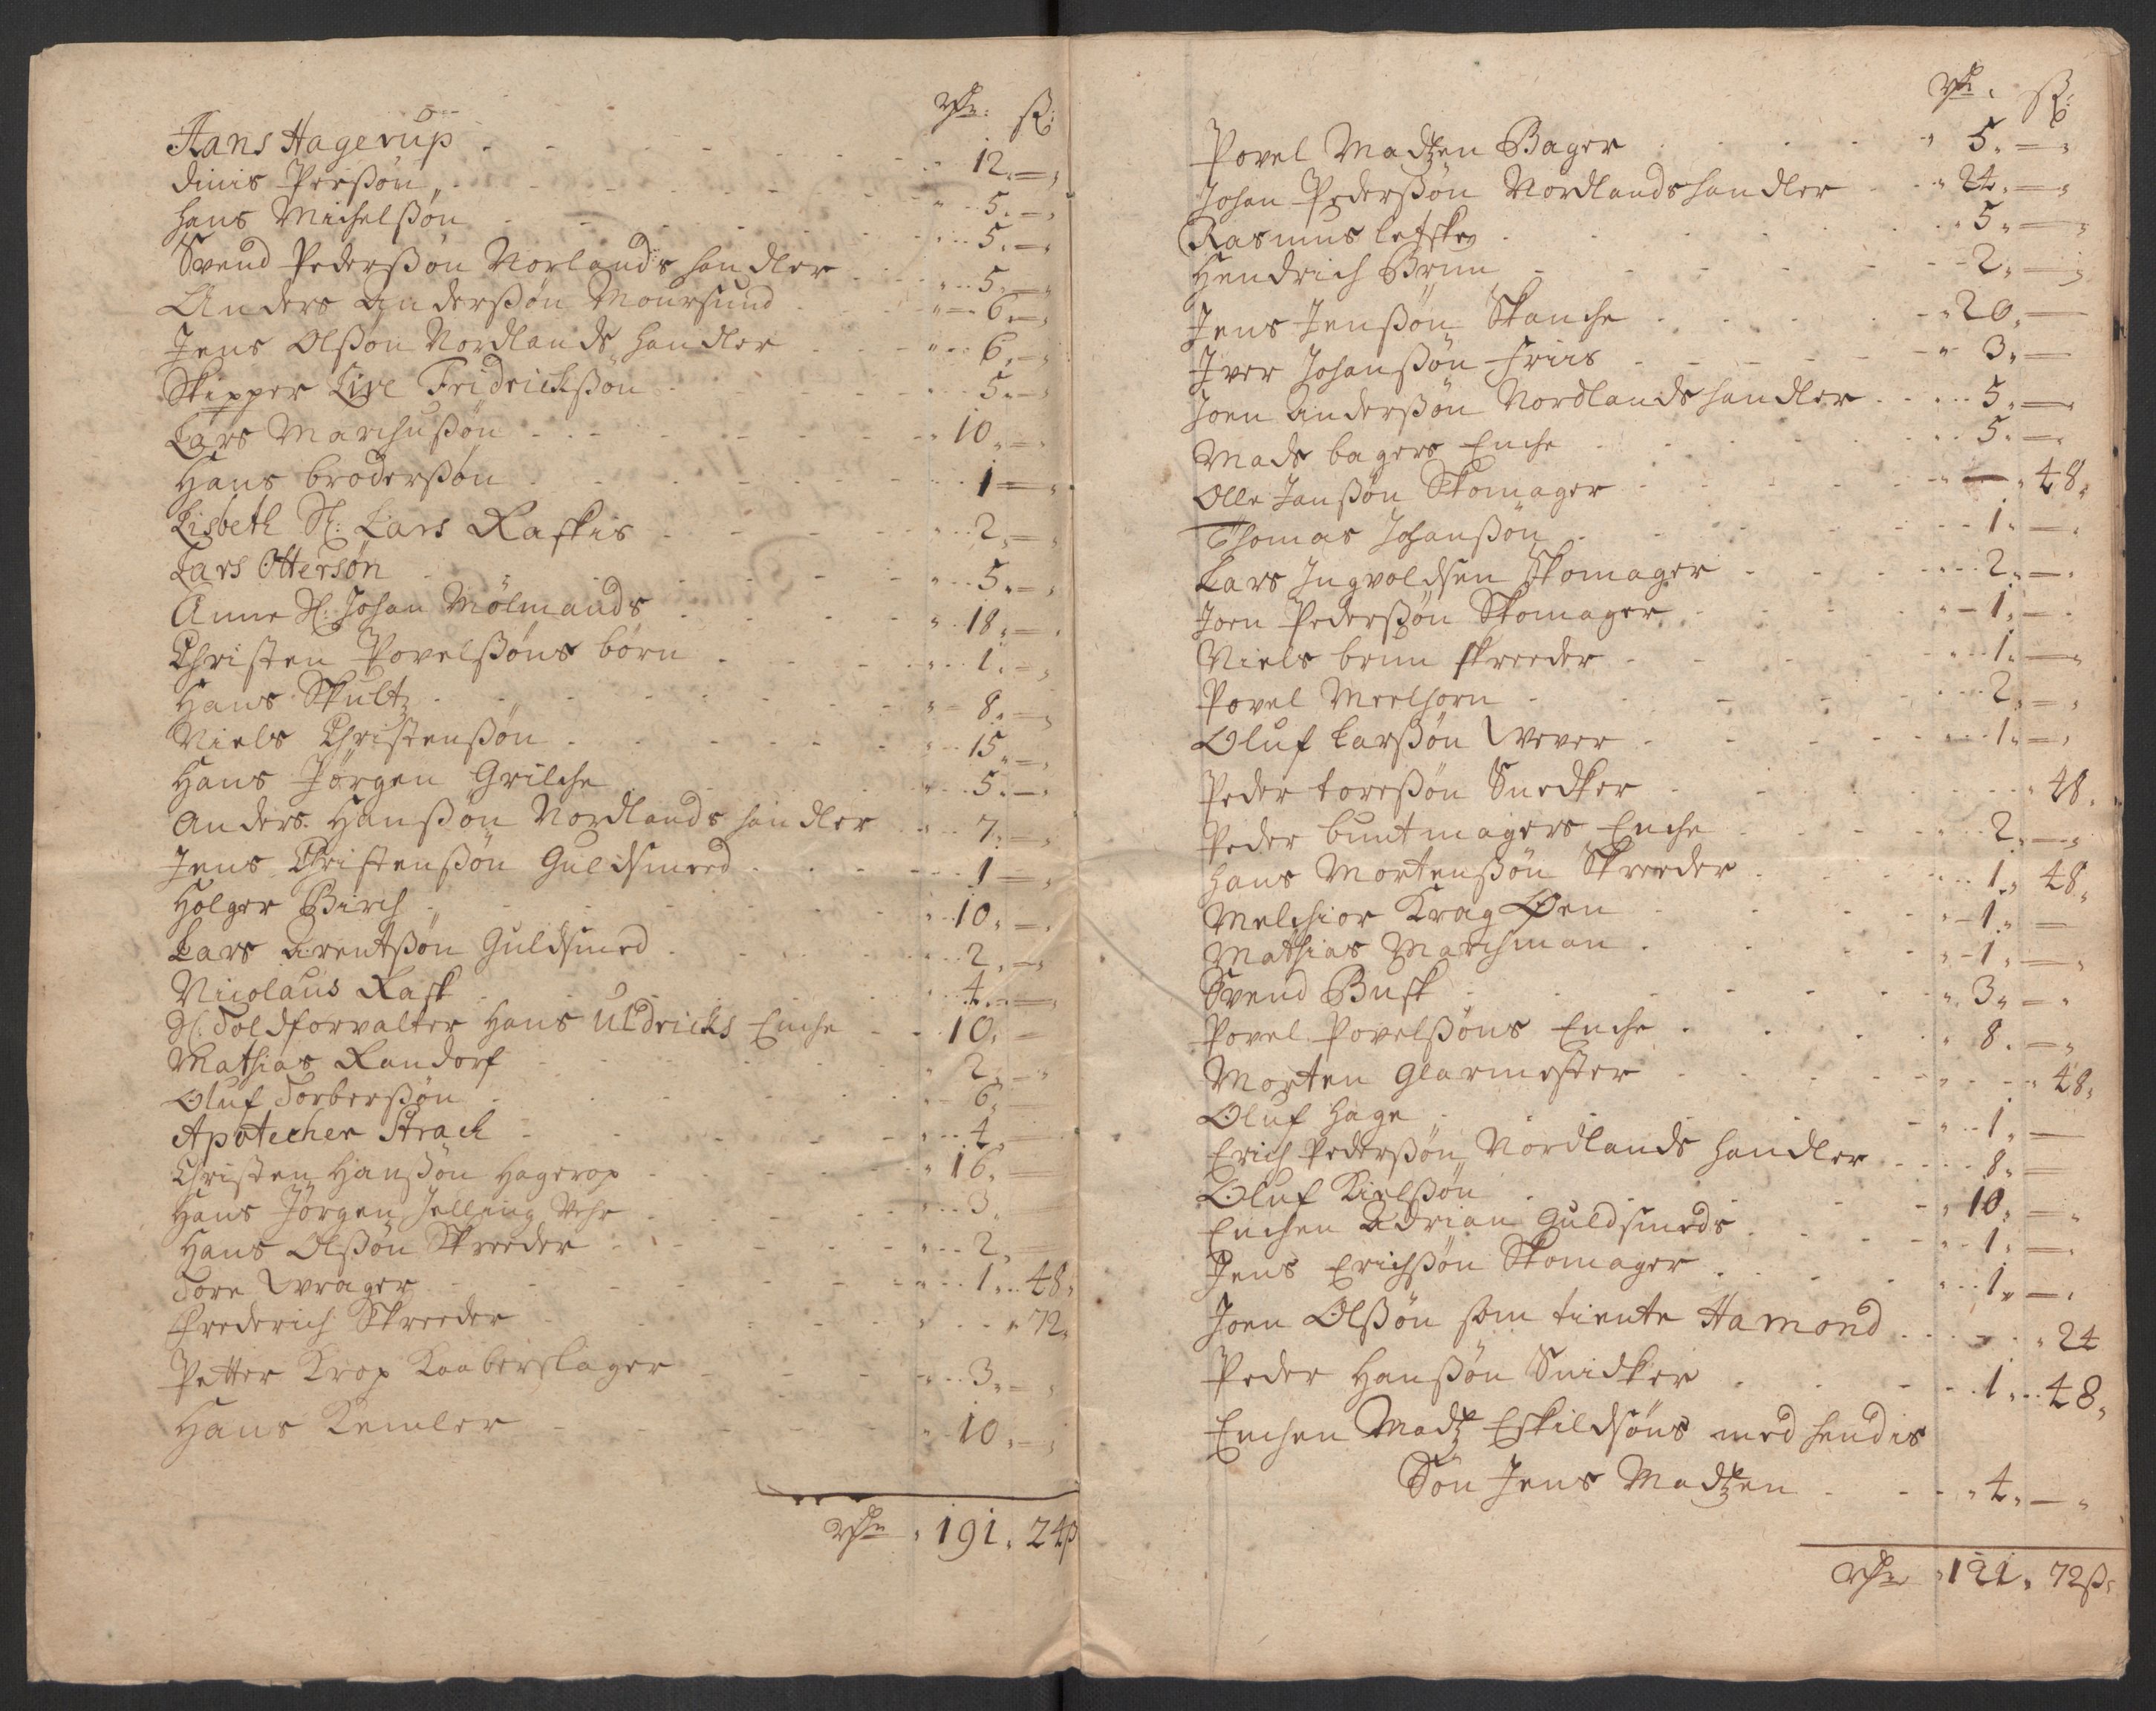 Rdr: ß:
Hans Hagerup 12. —
Dinis Pirsøn 5. —
Hans Michelsøn 5. —
Svend Pederssøn Norlands handler 5. —
Anders Anderssøn Moursund 6. —
Jens Olssøn Nordlands handler 6. —
Skipper Live Fridrichssøn 5. —
Lars Marchussøn 10. —
Hans broderssøn 1 —
Lisbeth Sl: Lars Raskis 2. —
Lars Ottersøn 5. —
Anne Sl: Johan Mölmands 18. —
Christen Povelssøns børn 1. —
Hans Skultz 8. —
Niels Christenssøn 15. —
Hans Jørgen Grilche 5. —
Anders Hanssøn Nordlands handler 7. —
Jens Christenssøn Guldsmed 1 —
Holger Birch 10. —
Lars Arentssøn Guldsmed 2. —
Nicolaus Rask 4. —
Sl. Toldforvalter Hans Uldrichs Enche 10. —
Mathias Randorf 2. —
Oluf Torberssøn 6. —
Apotecher Strach 4. —
Christen Hanssøn Hagerop 16. —
Hans Jørgen Jelling 3. —
Hans Olssøn Skreeder 2. —
Tore Wrager 1. 48.
Frederich Skreeder 72.
Petter Krop Kaaberslager 3. —
Hans Kemler 10. —
Rdr 191. 24ß
Rdr. ß:
Povel Madtzen Bager 5. —
Johan Pederssøn Nordlands handler 24. —
Rasmus 5. —
Hendrich Brun 2. —
Jens Jenssøn Stanche 20. —
Iver Johanssøn Friis 3. —
Joen Anderssøn Nordlands handler 5. —
Mads bagers Enche 5. —
Olle Janssøn Skomager — 48.
Thomas Johanssøn 1. —
Lars Ingvoldsen Skomager 2. —
Joen Pederssøn Skomager 1. —
Niels brun skreeder 1. —
Povel Meelhorn 2. —
Oluf Larssøn Wever 1. —
Peder toressøn Snedker 48.
Peder buntmagers Enche 2. —
Hans Mortenssøn Skreeder 1. 48.
Melchior Krag Øen 1. —
Mathias Marchman 1. —
Svend Busk 3. —
Povel Povelssøns Enche 8. —
Morten Glarmester 48.
Oluf Hage 1. —
Erich Pederssøn Nordlands handler 8. —
Oluf Kielssøn 10. —
Enchen Adrian Guldsmeds 1. —
Jens Erichssøn Skomager 1. —
Joen Olssøn som tiente Hamond 24
Peder Hanssøn Snidker 1. 48.
Enchen Madtz Eskildsøns med hendis
Søn Jens Madtzen 4. —
Rdr 121. 72ß.